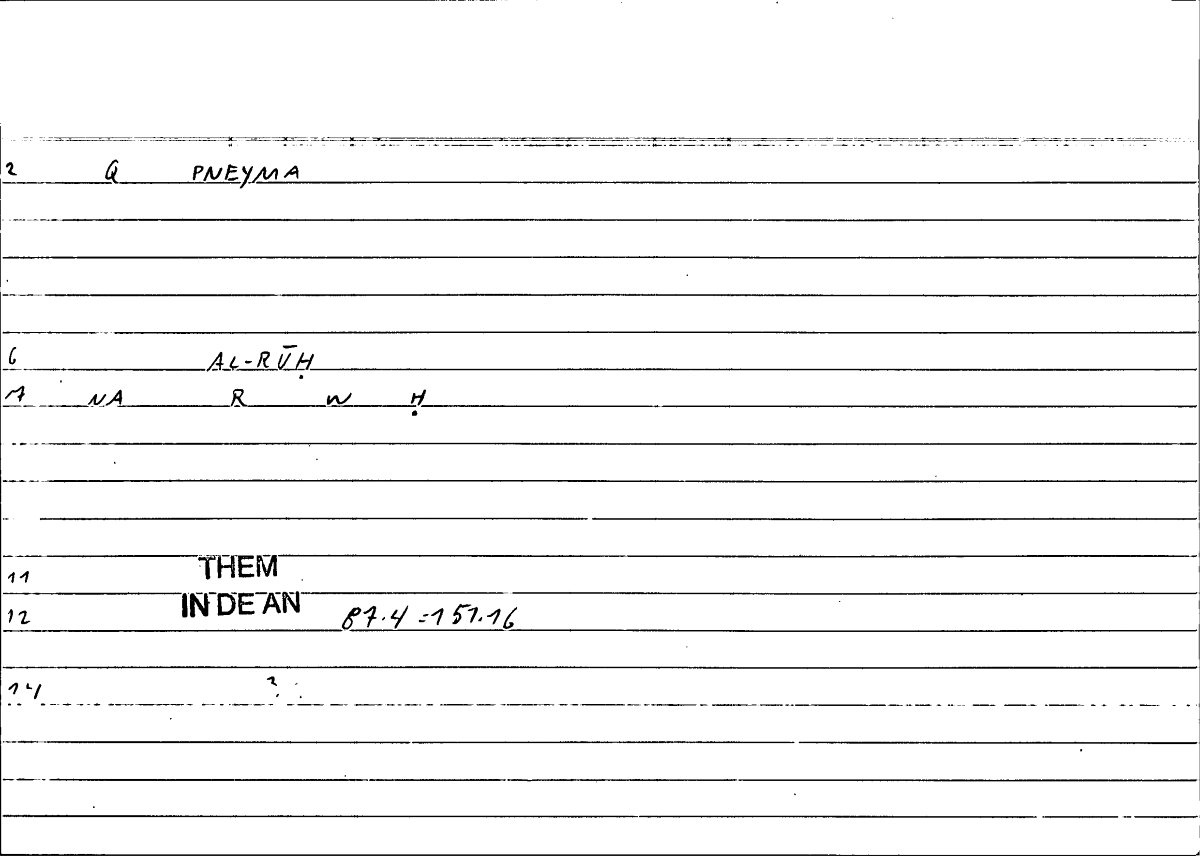 2 Q PNEYMA
6 AL-RŪḤ
7 NA R W Ḥ
11 THEM
12 IN DE AN 87.4 = 151.16
14